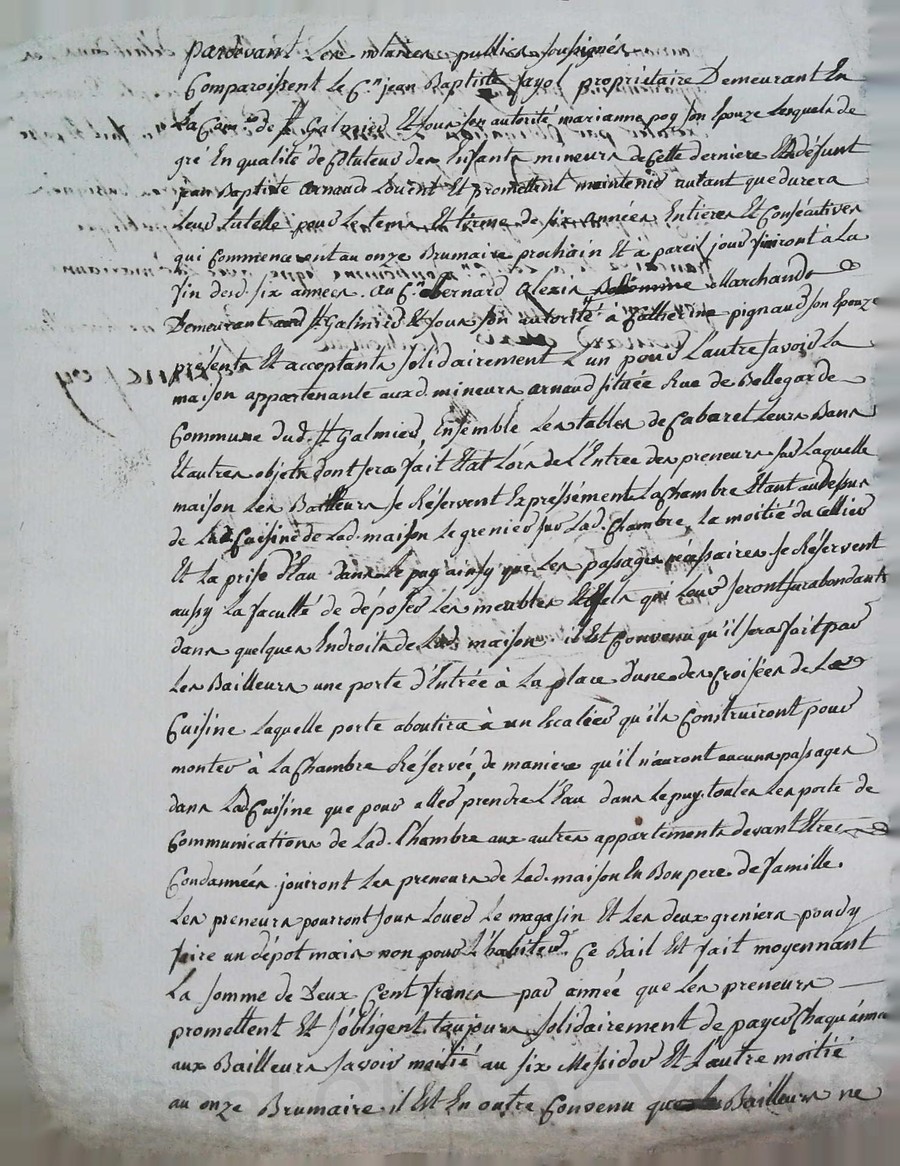 pardevant Les notaires publics soussignés
Comparoissent le Cn jean Baptiste fayol propriétaire Demeurant En
La Com ne de St Galmier Et sous son autorité marianne poy son Epouze Lesquels de
gré En qualité de Cotuteurs des Enfants mineurs de Cette derniere Et de défunt
jean Baptiste arnaud Louent Et promettent maintenir autant que durera
Leur tutelle pour Le tems Et terme de six années Entieres Et Consécutives
qui Commenceront au onze Brumaire prochain Et à pareil jour finiront à La
fin desd. six années. au Cn Bernard alexis Marchand
Demeurant aud St Galmier Et sous son autorité à Catherine pignaud son Epouze
présents Et acceptants solidairement L'un pour L'autre savoir La
maison appartenante auxd. mineurs arnaud située Rue de Bellegarde
Commune dud. St Galmier, Ensemble Les tables de Cabaret Leurs Bans
Et autres objets dont sera fait Etat Lors de L'Entree des preneurs sur Laquelle
maison Les Bailleurs se Réservent Expressément La Chambre Etant au dessus
de La Cuisine de Lad. maison Le grenier sur Lad. Chambre, La moitié du Cellier
Et La prise d'Eau dans Le puy ainsy que Les passages nécessaires se Réservent
aussy La faculté de déposer Les meubles Effets qui Leur seront surabondants
dans quelques Endroits de Lad. maison il Est Convenu qu'il sera fait par
Les Bailleurs une porte d'Entrée à La place d'une des Croisées de La
Cuisine Laquelle porte aboutira à un Escalier qu'ils Construiront pour
monter à La Chambre Réservée, de maniere qu'il n'auront aucuns passages
dans Lad Cuisine que pour aller prendre L'Eau dans Le puy. toutes Les porte de
Communications de Lad. Chambre aux autres appartements devant Etre
Condannées. jouiront Les preneurs de Lad. maison En Bon pere de famille.
Les preneurs pourront sous Louer Le magasin Et Les deux greniers pour y
faire un dépot mais non pour L'habiter. Ce Bail Est fait moyennant
La somme de Deux Cent francs par année que Les preneurs
promettent Et s'obligent toujours solidairement de payer Chaque année
aux Bailleurs savoir moitié au six Messidor Et L'autre moitié
au onze Brumaire. il Est En outre Convenu que Bailleurs ne